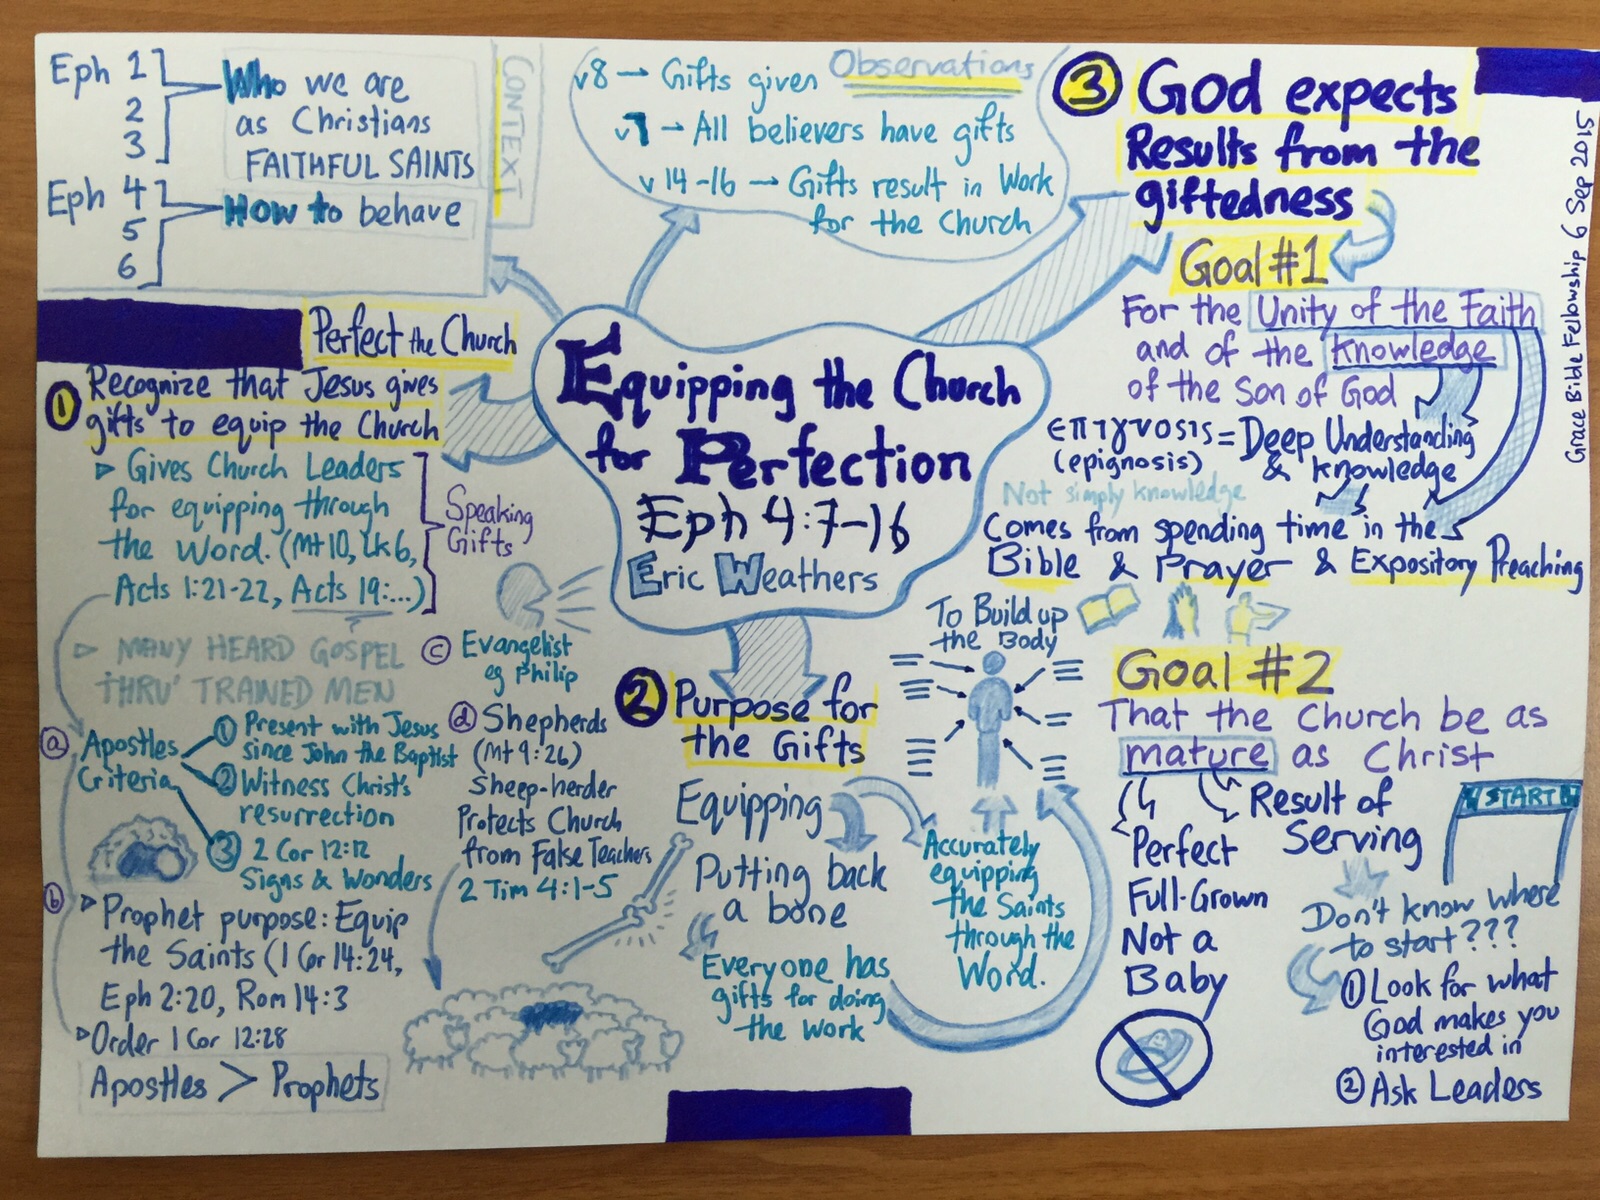 Eph 1
2
3
Who we are
as Christians
FAITHFUL SAINTS
Eph 4
5
6
How to behave
CONTEXT
Observations
v8 → Gifts given
v7 → All believers have gifts
v 14-16 → Gifts result in Work
for the Church
Equipping the Church
for Perfection
Eph 4:7-16
Eric Weathers
Perfect the Church
1 Recognize that Jesus gives
gifts to equip the Church
▷ Gives Church Leaders
for equipping through
the Word. (Mt 10, Lk 6,
Acts 1:21-22, Acts 19:...)
Speaking
Gifts
▷ MANY HEARD GOSPEL
THRU' TRAINED MEN
a Apostles
Criteria
① Present with Jesus
since John the Baptist
② Witness Christ's
resurrection
③ 2 Cor 12:12
Signs & Wonders
b ▷ Prophet purpose: Equip
the Saints (1 Cor 14:24,
Eph 2:20, Rom 14:3
▷ Order 1 Cor 12:28
Apostles > Prophets
c Evangelist
eg Philip
d Shepherds
(Mt 9:26)
Sheep-herder
Protects Church
from False Teachers
2 Tim 4:1-5
2 Purpose for
the Gifts
Equipping
Putting back
a bone
Everyone has
gifts for doing
the Work
Accurately
equipping
the Saints
through the
Word.
To Build up
the Body
3 God expects
Results from the
giftedness
Goal #1
For the Unity of the Faith
and of the knowledge
of the Son of God
επιγνοσις = Deep Understanding
(epignosis) & knowledge
Not simply knowledge
Comes from spending time in the
Bible & Prayer & Expository Preaching
Goal #2
That the Church be as
mature as Christ
Perfect
Full-Grown
Not a
Baby
Result of
Serving
START
Don't know where
to start???
① Look for what
God makes you
interested in
② Ask Leaders
Grace Bible Fellowship 6 Sep 2015